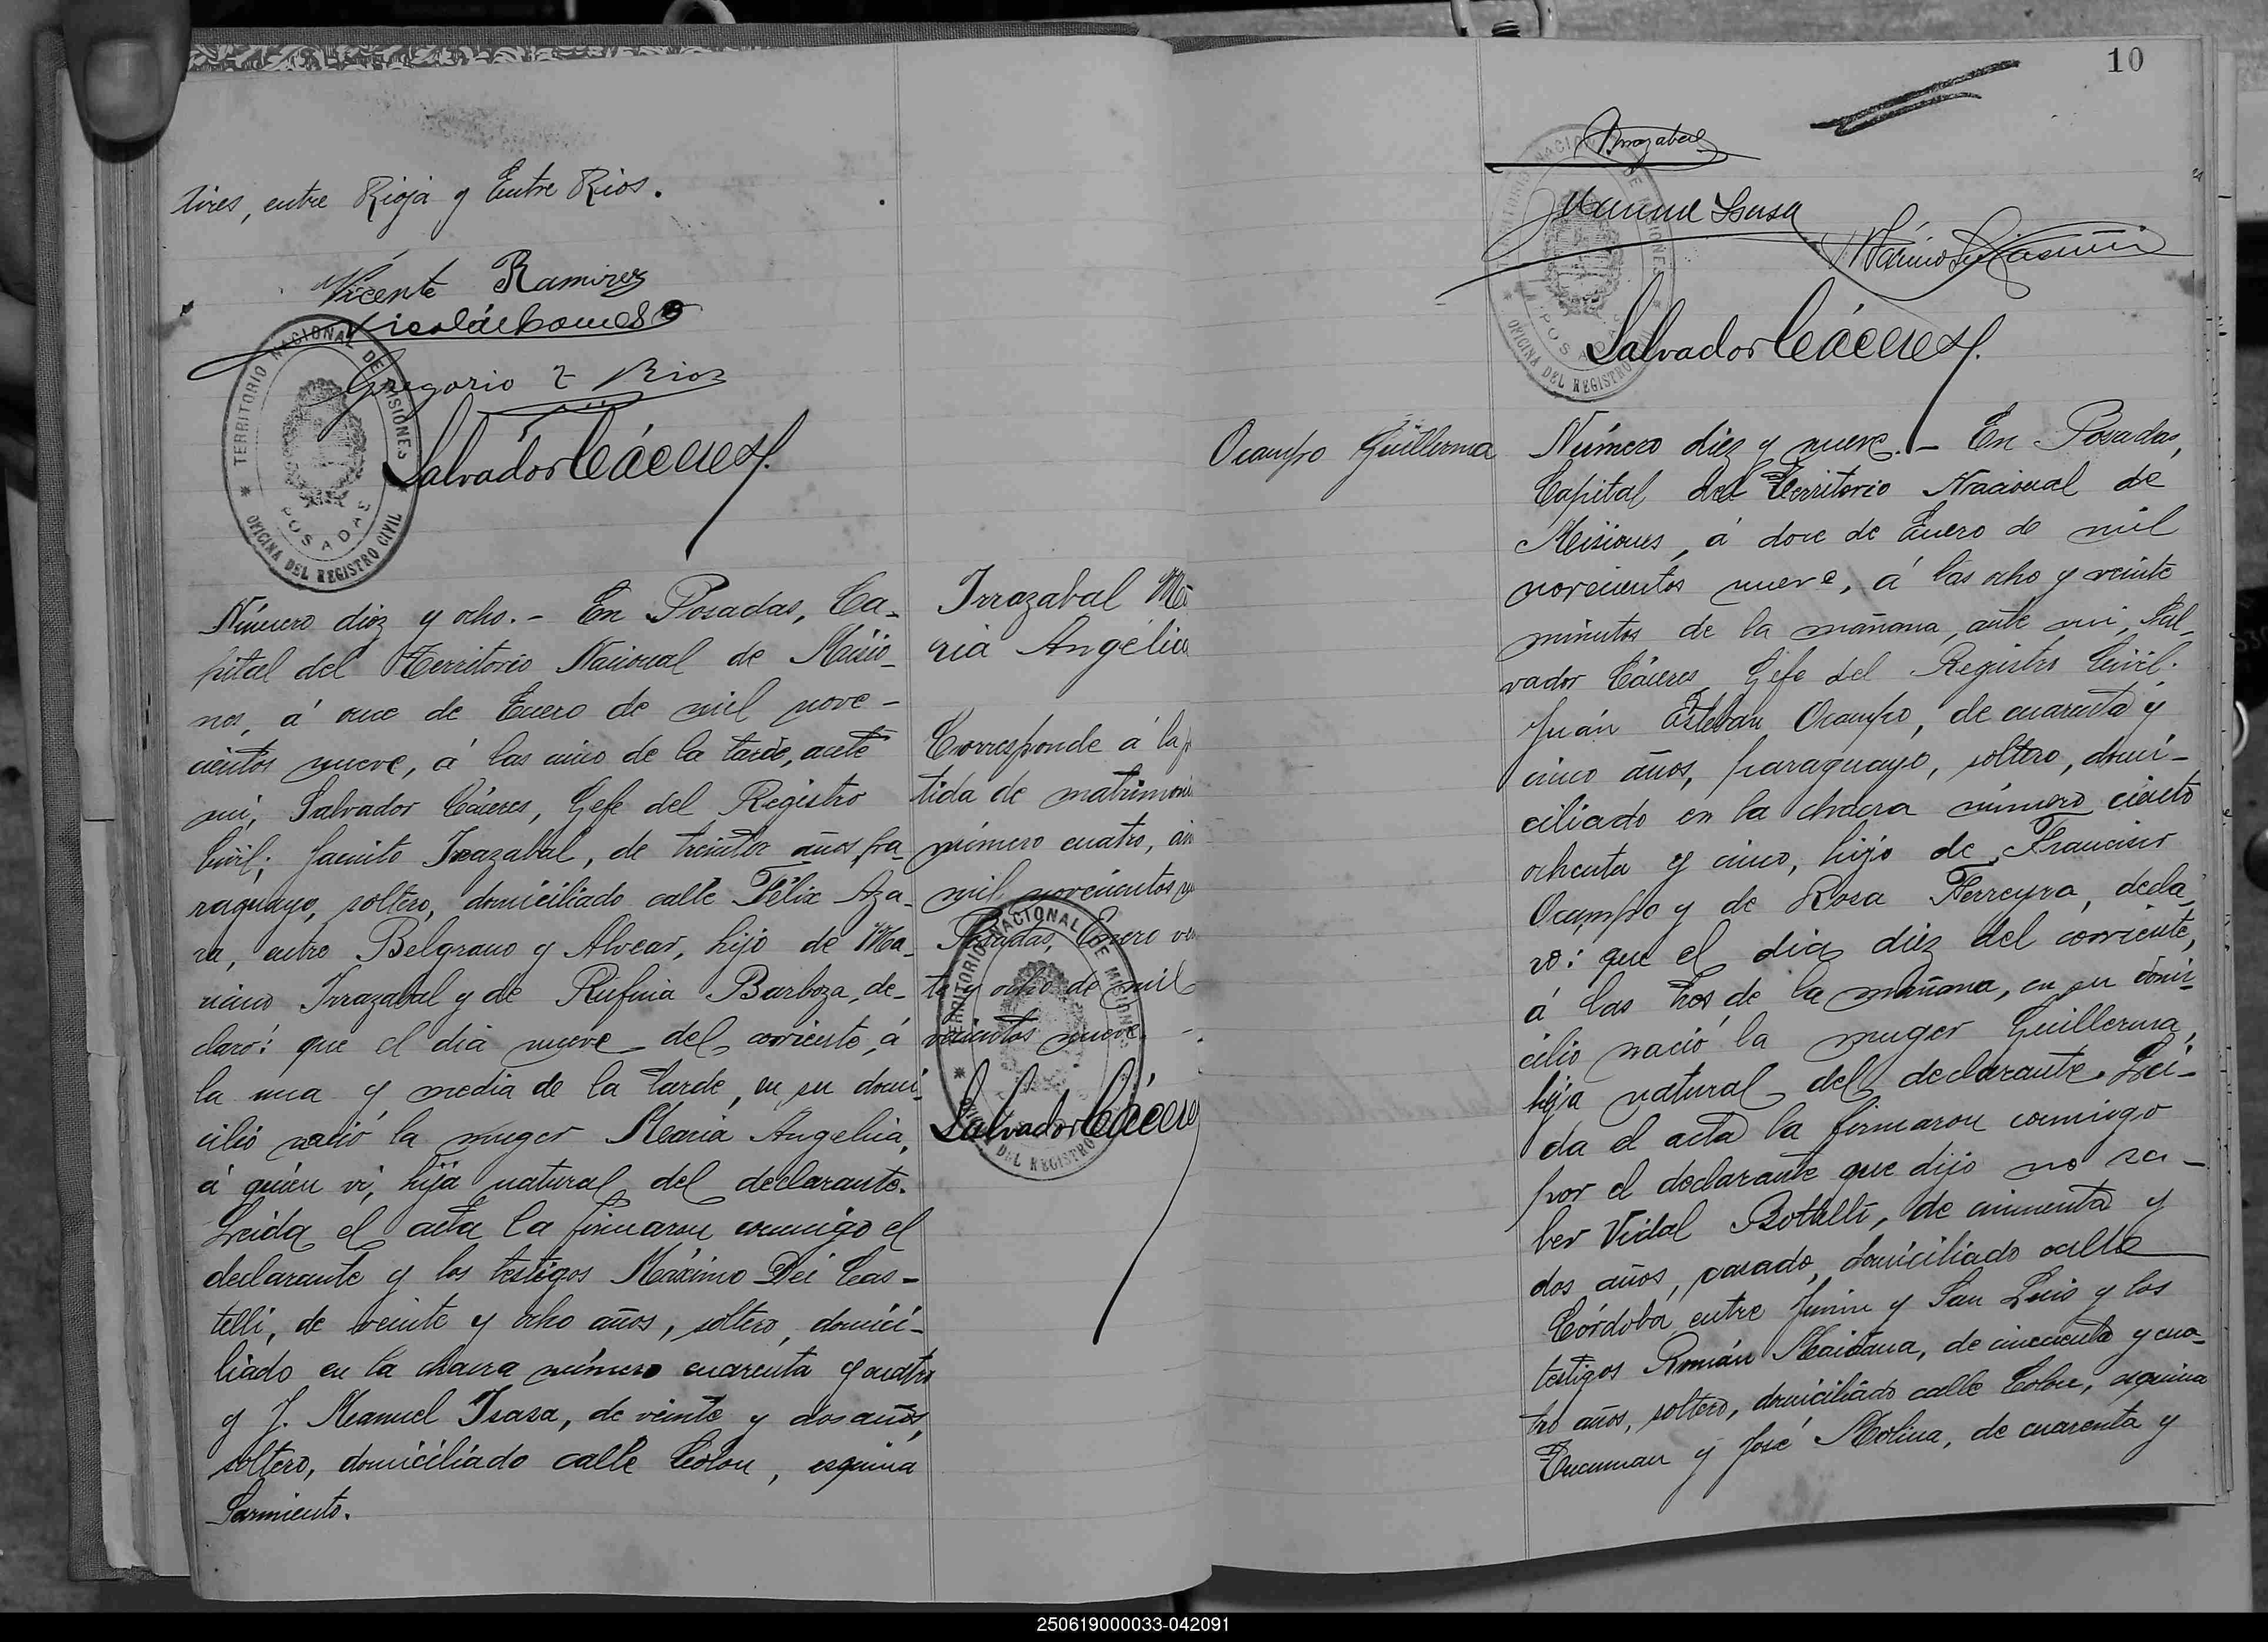 tires, entre Rioja y Entre Rios.
Vicente Ramirez
Gregorio Z Rios
Salvador Cáceres
TERRITORIO NACIONAL DE MISIONES
POSADAS
OFICINA DEL REGISTRO CIVIL
Número diez y ocho.- En Posadas, Ca-
pital del Territorio Nacional de Misio-
nes, á once de Enero de mil nove-
cientos nueve, á las cinco de la tarde, ante
mi, Salvador Cáceres, Gefe del Registro
Civil; Jacinto Irrazabal, de treinta años, pa-
raguayo, soltero, domiciliado calle Félix Aza-
ra, entre Belgrano y Alvear, hijo de Ma-
riano Irrazabal y de Rufina Barboza, de-
claró: que el dia nueve del corriente, á
la una y media de la tarde, en su domi-
cilio nació la muger Maria Angelica,
á quien vi, hija natural del declarante.
Leida el acta la firmaron conmigo el
declarante y los testigos Máximo Dei Cas-
telli, de veinte y ocho años, soltero, domici-
liado en la chacra número cuarenta y cuatro
y J. Manuel Isasa, de veinte y dos años,
soltero, domiciliado calle Colon, esquina
Sarmiento.
Irrazabal Ma
ria Angélica
Corresponde á la p
tida de matrimoni
número cuatro, añ
mil novecientos nu
Posadas, Enero ve
te y ocho de mil
vecientos nueve. -
TERRITORIO NACIONAL DE MISIONES
DEL REGISTRO
Salvador Cácere
10
Irrazabal
Manuel Isasa
Salvador Cáceres
NACIONAL DE MISIONES
POSADAS
OFICINA DEL REGISTRO CIVIL
Ocampo Guillerma
Número diez y nueve.- En Posadas,
Capital del Territorio Nacional de
Misiones, á doce de Enero de mil
novecientos nueve, á las ocho y veinte
minutos de la mañana, ante mi, Sal-
vador Cáceres, Gefe del Registro Civil;
Juán Estevan Ocampo, de cuarenta y
cinco años, paraguayo, soltero, domi-
ciliado en la chacra número ciento
ochenta y cinco, hijo de Francisco
Ocampo y de Rosa Ferreyra, decla-
ró: que el dia diez del corriente,
á las tres de la mañana, en su domi-
cilio nació la muger Guillerma,
hija natural del declarante. Lei-
da el acta la firmaron conmigo
por el declarante que dijo no sa-
ber Vidal Botelli, de cincuenta y
dos años, casado, domiciliado calle
Córdoba entre Junin y San Luis y los
testigos Román Maidana, de cincuenta y cua-
tro años, soltero, domiciliado calle Colon, esquina
Tucuman y José Molina, de cuarenta y
250619000033-042091